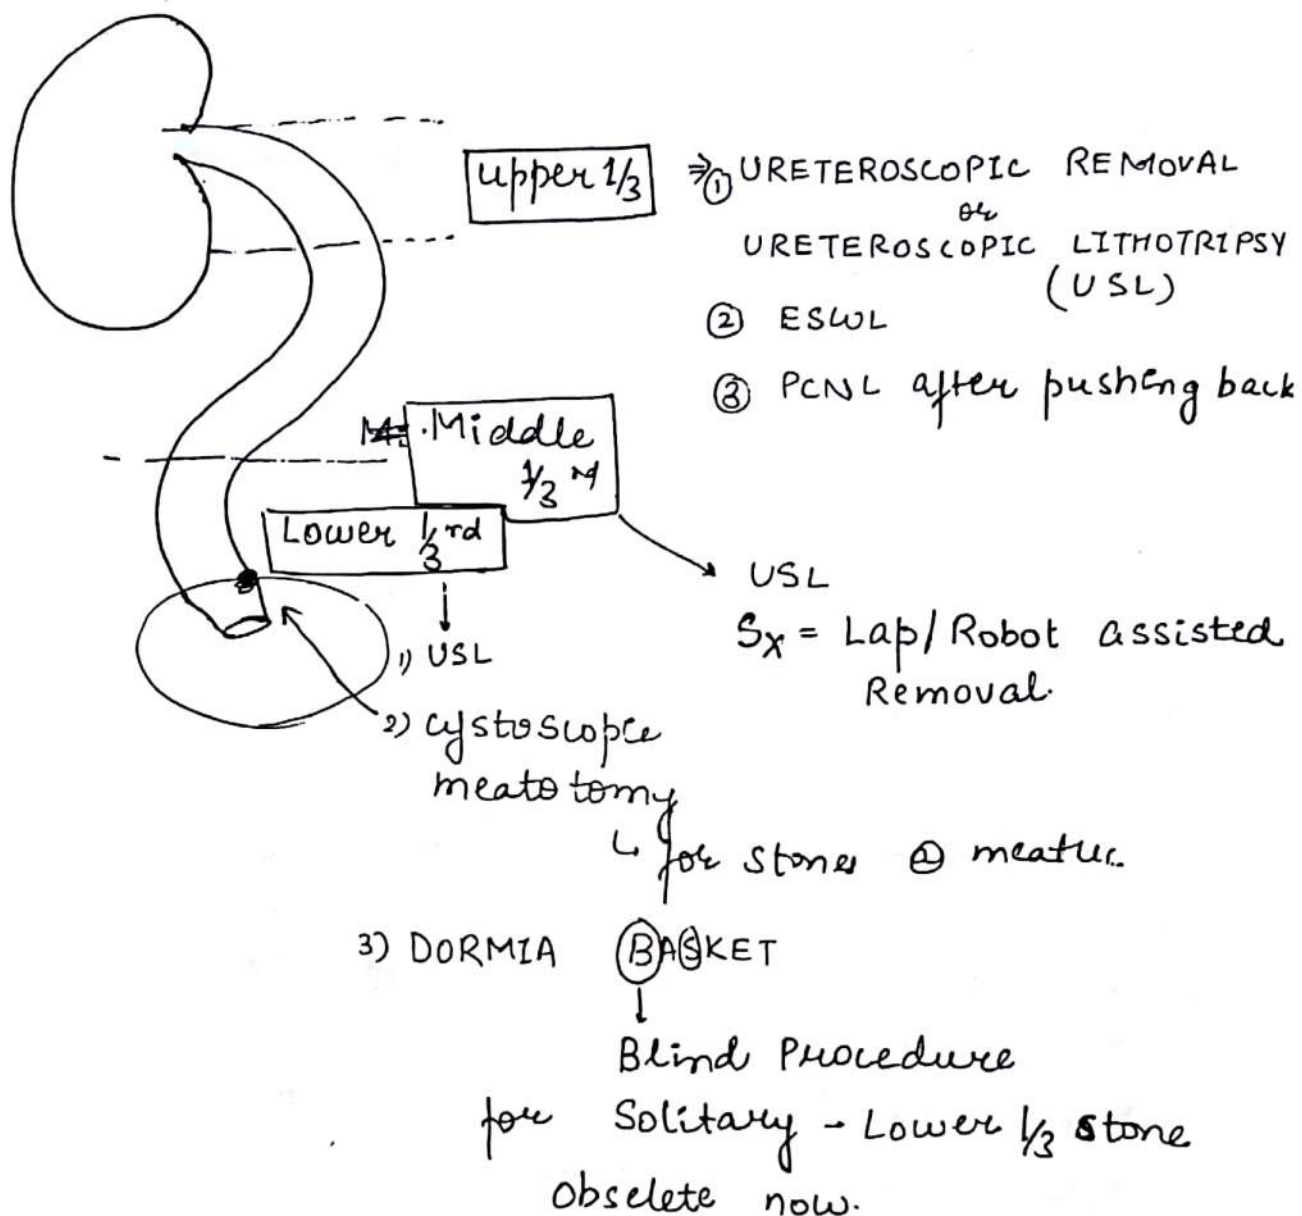 Upper 1/3
⇒① URETEROSCOPIC REMOVAL
or
URETEROSCOPIC LITHOTRIPSY
(USL)
② ESWL
③ PCNL after pushing back
Middle
1/3
Lower 1/3 rd
USL
Sx = Lap/Robot assisted
Removal.
1) USL
2) Cystoscopic
meatotomy
↳ for stones @ meatus.
3) DORMIA BASKET
Blind Procedure
for Solitary - Lower 1/3 stone
Obselete now.